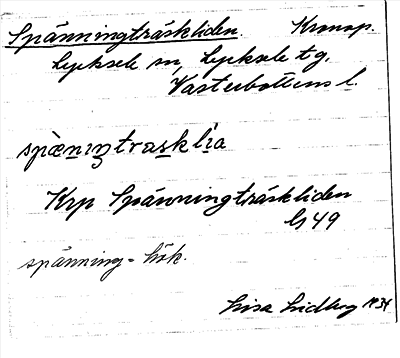 Spänningträskliden. Kronop.
Lycksele sn, Lycksele tg.
Västerbottens l.
spä̀nıŋtraskli̇̀a
Krp Spänningträskliden
G 49
spänning = hök.
Lisa Lidberg 1934